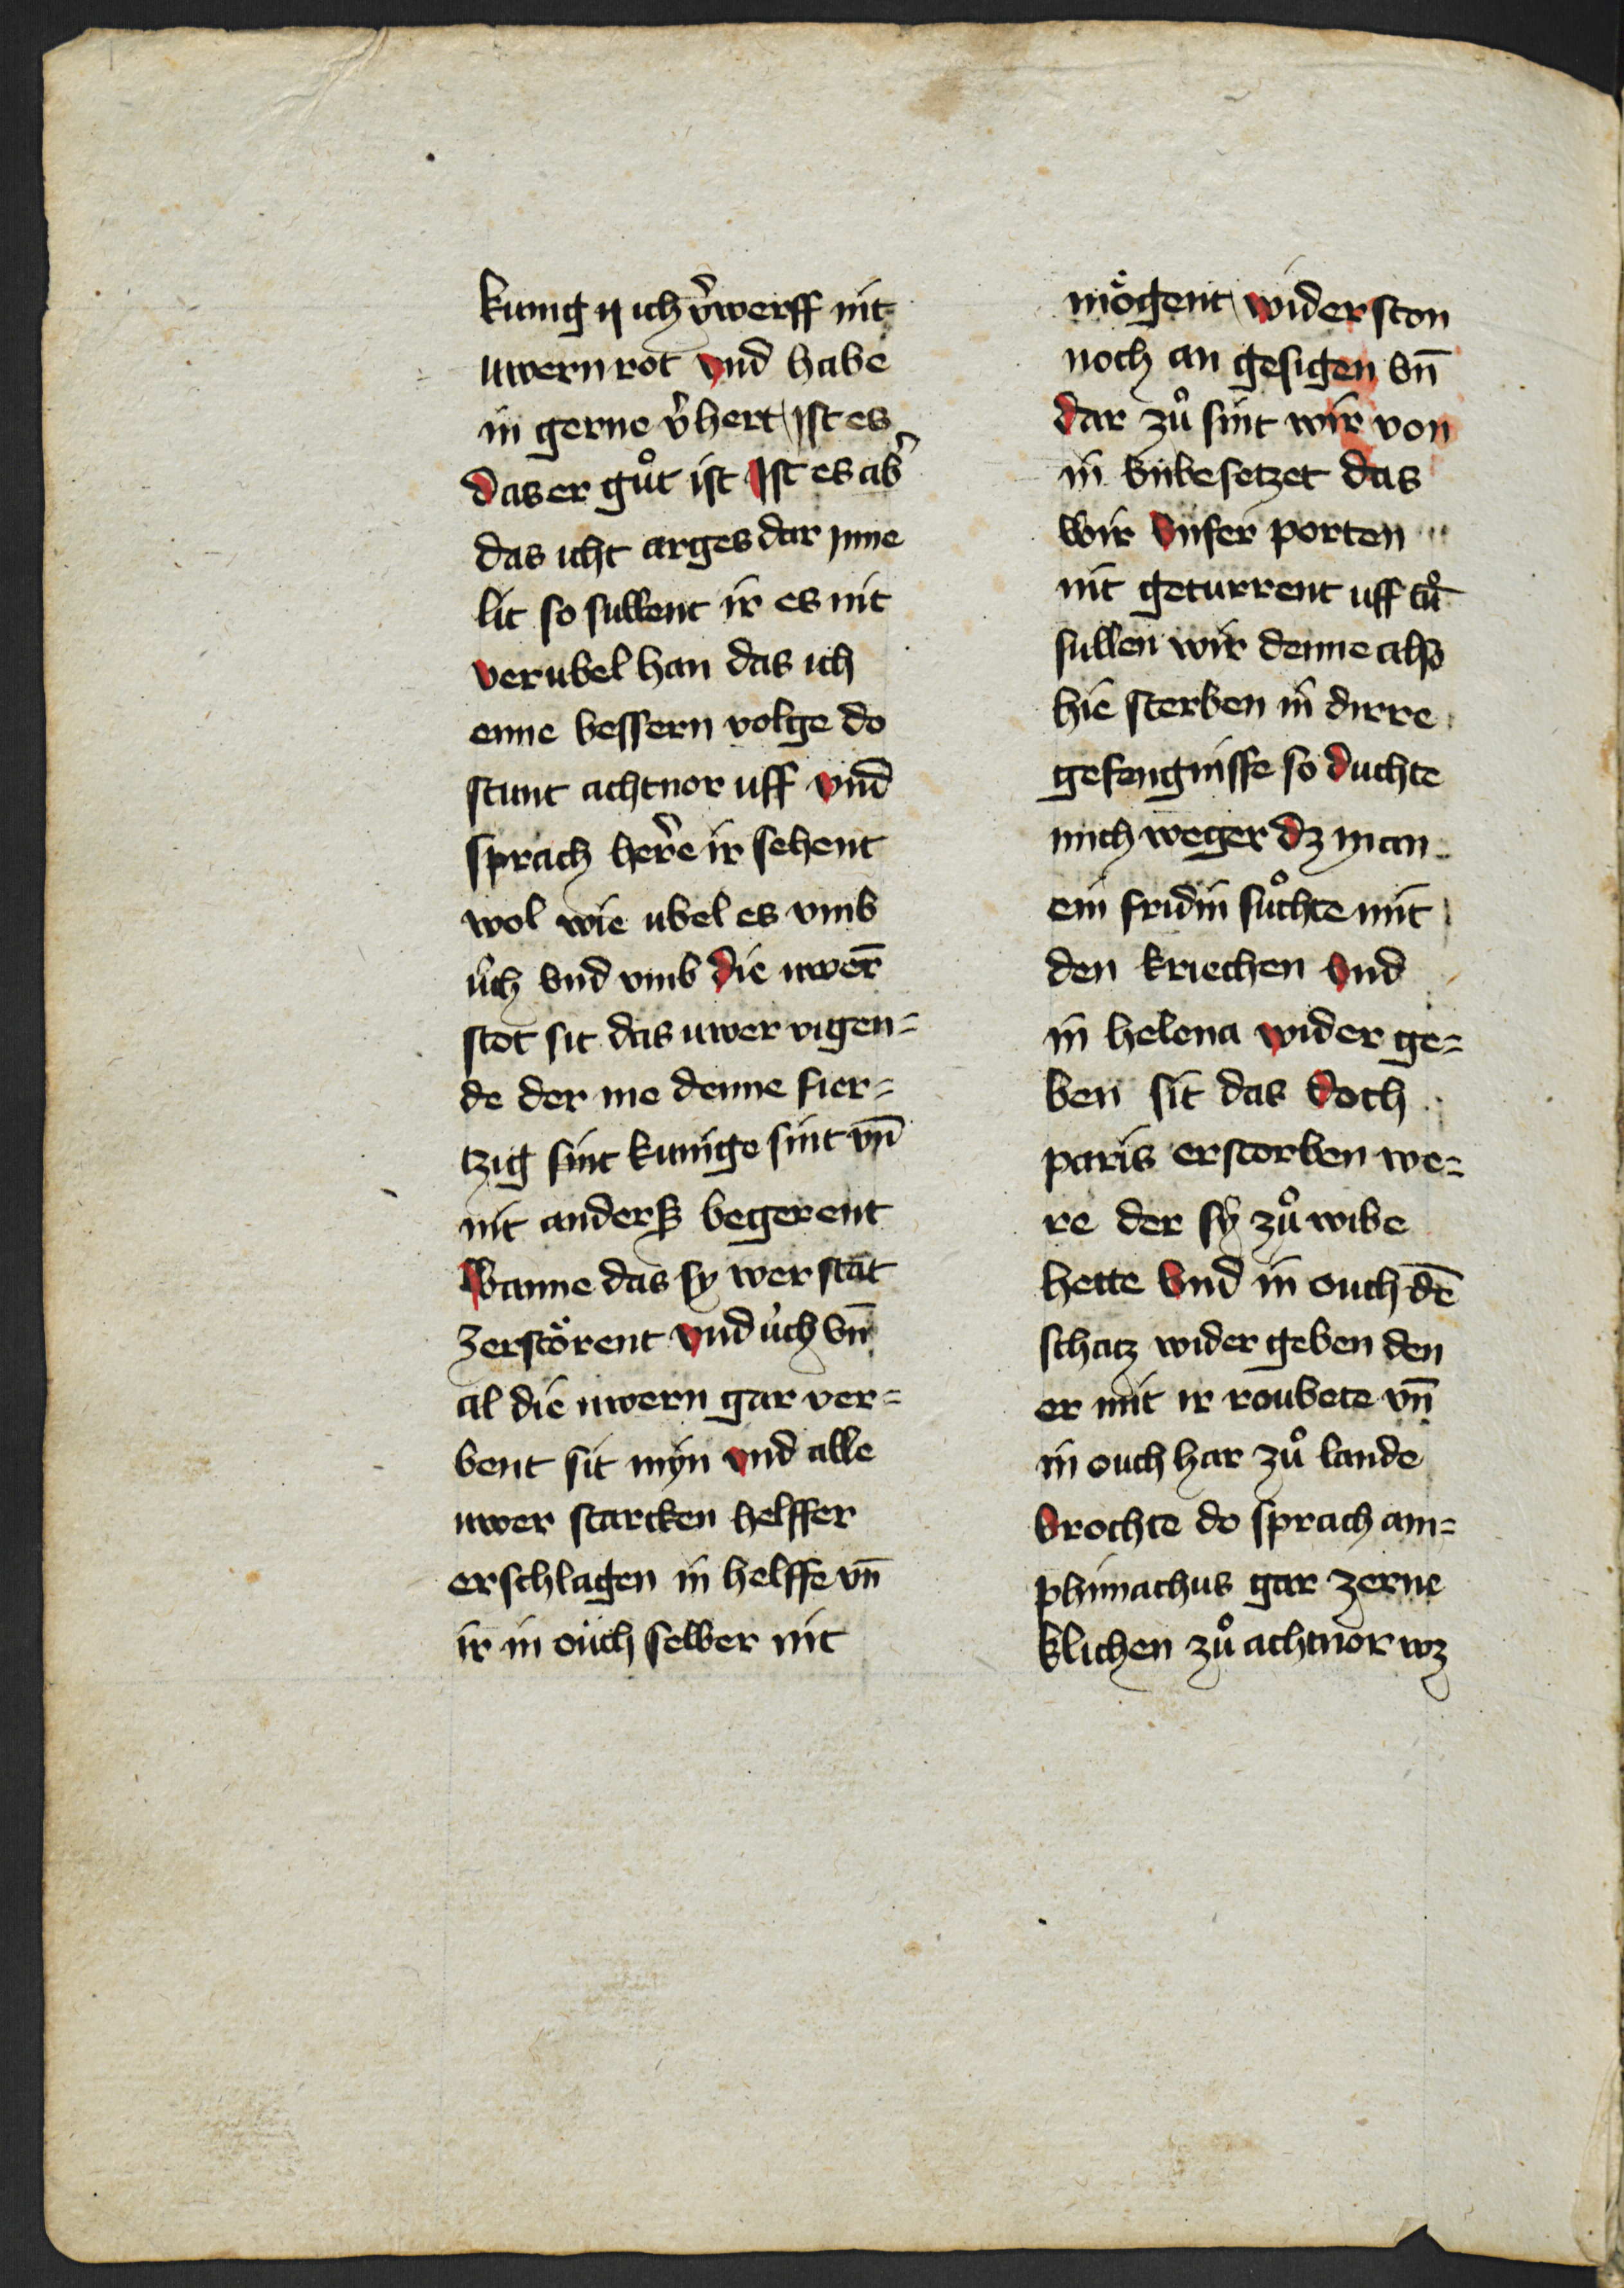 kunig ich v͛werff nit
uwern rot vnd habe
in gerne v͛hert Ist es
das er gůt ist Ist es ab͛
das icht arges dar jnne
lit so sullent ir es nit
verubel han das ich
eime bessern volge do
stunt achtnor uff vnd
sprach her͛e ir sehent
wol wie ubel es vmb
úch vnd vmb die uwer̄
stot sit das uwer vigen=
de der me denne fier=
tzig sint kunige sint vn̄
nit anderß begerent
Wanne das sy wer stat
zerstörent vnd úch vn̄
al die uwern gar ver=
bent sit myn vnd alle
uwer starcken helffer
erschlagen in helffe vn̄
ir in oúch selber nit
mögent widerston
noch an gesigen vn̄
dar zů sint wir von
in vmbesetzet das
wir vnser porten
nit geturrent uff tůn
sullen wir denne also
hie sterben in dirre
gefengnisse so duchte
mich weger dz man
ein fridin sůchte mit
den kriechen vnd
in helena wider ge=
ben sit das doch
paris erstorben we=
re der sÿ zů wibe
hette vnd in ouch dē
schatz wider geben den
er mit ir roubete vn̄
in ouch har zů lande
brochte do sprach am=
phimachus gar zerne
klichen zů achtnor wz